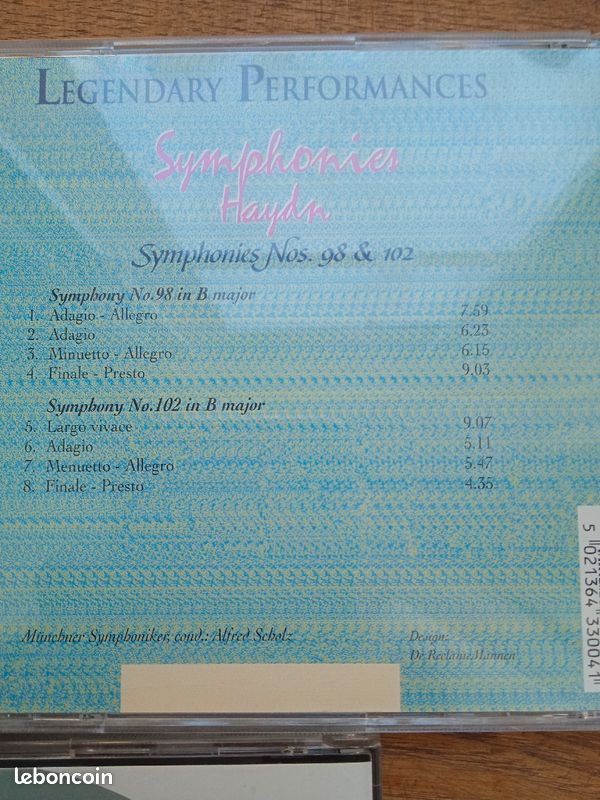 LEGENDARY PERFORMANCES
Symphonies
Haydn
Symphonies Nos. 98 & 102
Symphony No.98 in B major
1. Adagio - Allegro 7.59
2. Adagio 6.23
3. Minuetto - Allegro 6.15
4. Finale - Presto 9.03
Symphony No.102 in B major
5. Largo vivace 9.07
6. Adagio 5.11
7. Menuetto - Allegro 5.47
8. Finale - Presto 4.35
Münchner Symphoniker, cond.: Alfred Scholz
Design:
De Reclame Mannen
5 021364 330041
leboncoin